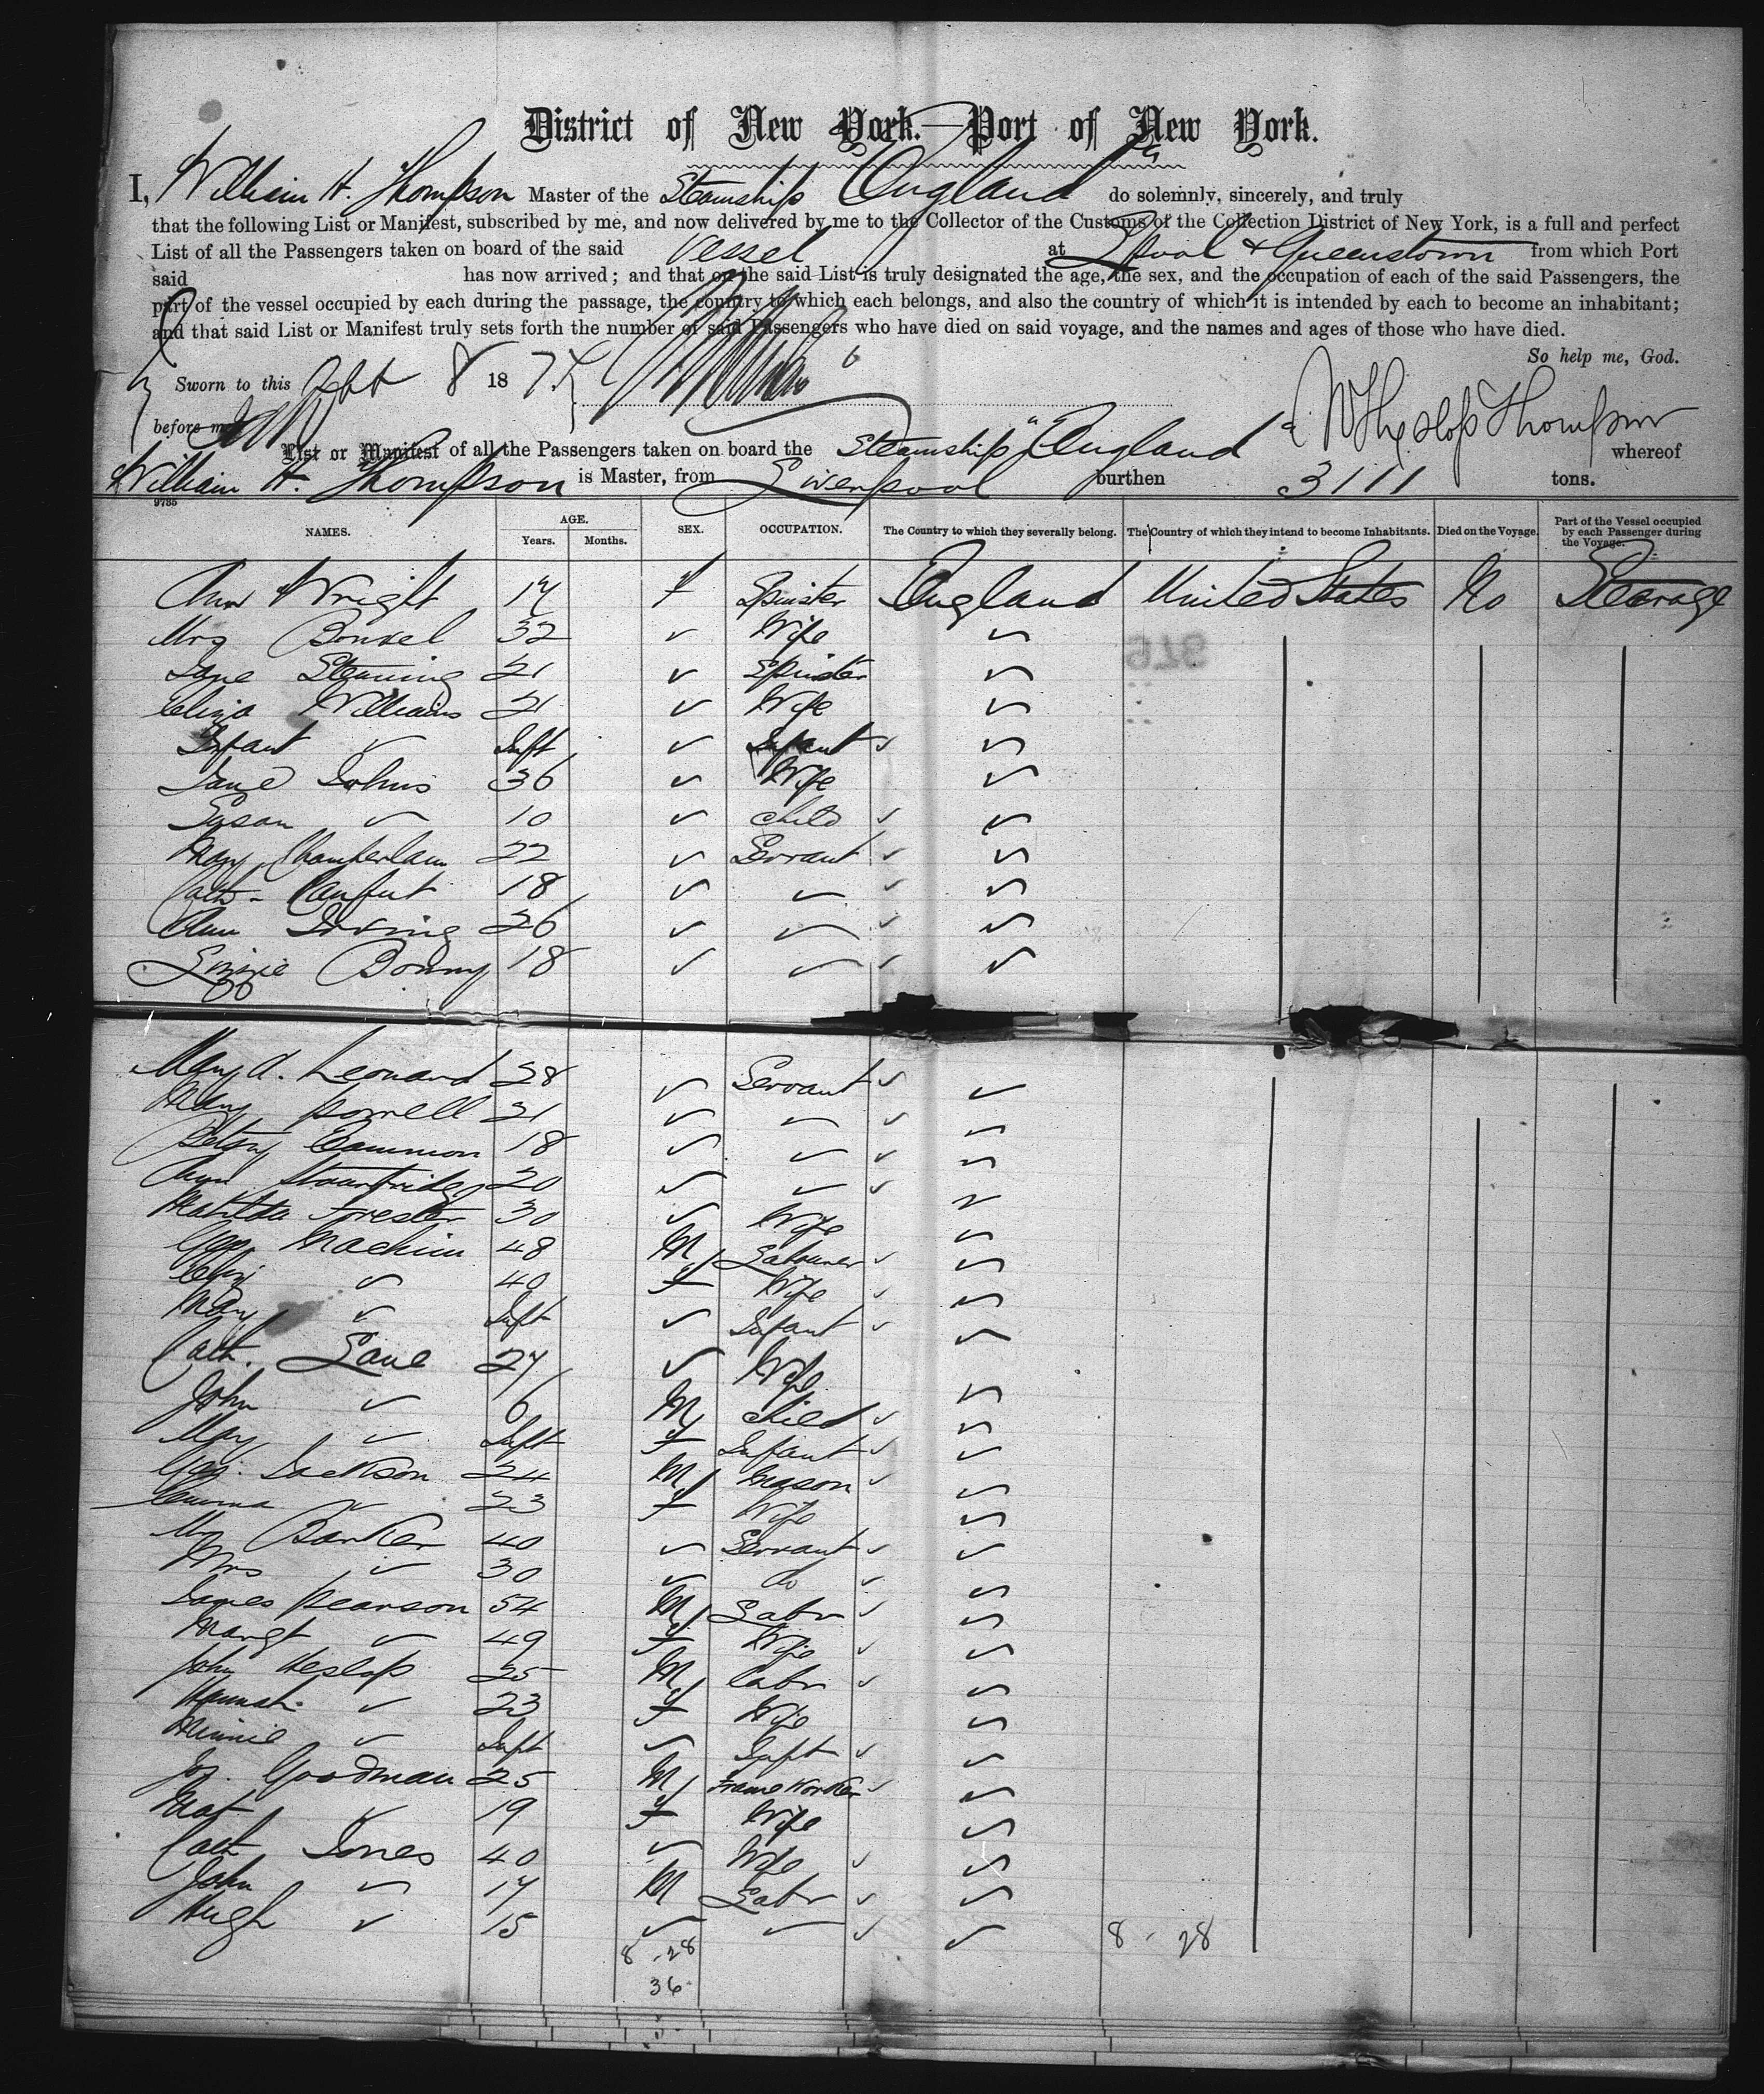 District of New York.—Port of New York.
I, William H. Thompson Master of the Steamship England do solemnly, sincerely, and truly
that the following List or Manifest, subscribed by me, and now delivered by me to the Collector of the Customs of the Collection District of New York, is a full and perfect
List of all the Passengers taken on board of the said Vessel at Lpool & Queenstown from which Port
said has now arrived; and that on the said List is truly designated the age, the sex, and the occupation of each of the said Passengers, the
part of the vessel occupied by each during the passage, the country to which each belongs, and also the country of which it is intended by each to become an inhabitant;
and that said List or Manifest truly sets forth the number of said Passengers who have died on said voyage, and the names and ages of those who have died.
So help me, God.
Sworn to this 8 187
before me
W Hyslop Thompson
List or Manifest of all the Passengers taken on board the Steamship "England whereof
William H. Thompson is Master, from Liverpool burthen 3111 tons.
9785
NAMES. AGE. SEX. OCCUPATION. The Country to which they severally belong. The Country of which they intend to become Inhabitants. Died on the Voyage. Part of the Vessel occupied by each Passenger during the Voyage.
Years. Months.
Ann Wright 17 f Spinster England United States No Steerage
Mrs 32 ✓ Wife ✓
Jane 21 ✓ Spinster ✓
Eliza Williams 21 ✓ Wife ✓
Infant ✓ Inft ✓ Infant ✓ ✓
Jane Johns 36 ✓ Wife ✓
Susan ✓ 10 ✓ Child ✓ ✓
Mary Chamberlain 22 ✓ Servant ✓ ✓
Cath- 18 ✓ ✓ ✓ ✓
Ann 26 ✓ ✓ ✓ ✓
Lizzie Bonny 18 ✓ ✓ ✓ ✓
Mary A. Leonard 28 ✓ Servant ✓ ✓
Mary Powell 21 ✓ ✓ ✓ ✓
Betsy Cammon 18 ✓ ✓ ✓ ✓
Ann 20 ✓ ✓ ✓ ✓
Matilda Forester 30 ✓ Wife ✓
Geo. Machim 48 M Labourer ✓ ✓
Eliz ✓ 40 f Wife ✓ ✓
Mary ✓ Inft ✓ Infant ✓ ✓
Cath. Lane 27 ✓ Wife ✓
John ✓ 6 M Child ✓ ✓
Mary ✓ Inft f Infant ✓ ✓
Geo. Jackson 24 M Mason ✓ ✓
Emma ✓ 23 f Wife ✓
Barker 40 ✓ Servant ✓ ✓
Mrs ✓ 30 ✓ do ✓ ✓
James Pearson 54 M Labr ✓ ✓
Margt ✓ 49 f Wife ✓ ✓
John Heslop 25 M Labr ✓ ✓
Hannah ✓ 23 f Wife ✓
Minnie ✓ Inft ✓ Inft ✓ ✓
Jos. Goodman 25 M Frame Worker ✓ ✓
Mat ✓ 19 f Wife ✓
Cath Jones 40 ✓ Wife ✓ ✓
John ✓ 17 M Labr ✓ ✓
Hugh ✓ 15 ✓ ✓ ✓ ✓
8 - 28 8 - 28
36